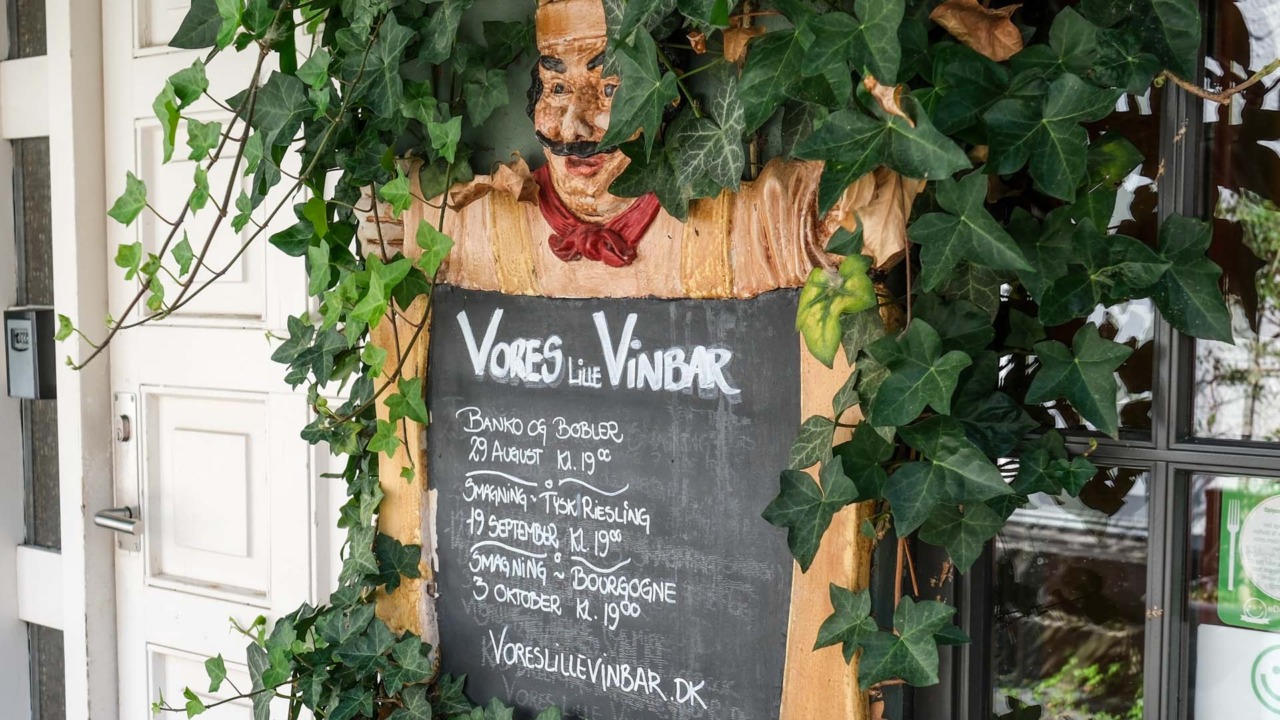 VORES LILLE VINBAR
BANKO OG BOBLER
29 AUGUST KL. 19⁰⁰
SMAGNING ~ TYSK RIESLING
19 SEPTEMBER KL. 19⁰⁰
SMAGNING ~ BOURGOGNE
3 OKTOBER KL. 19⁰⁰
VORESLILLEVINBAR.DK